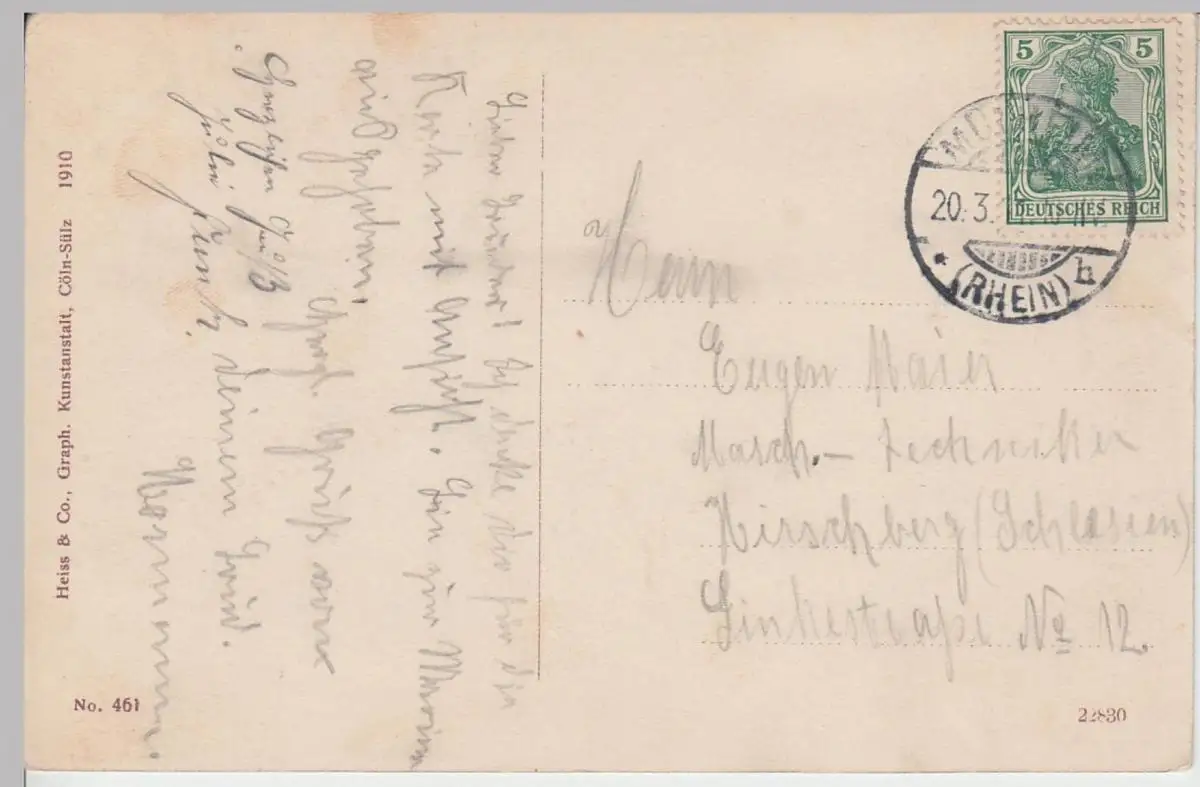 Heiss & Co., Graph. Kunstanstalt, Cöln-Sülz 1910
No. 461
Lieber Bruder! Ich danke dir für die
Karte mit Ansicht. Bin zur Marine
Herzl. Gruß von
deinem Brud.
Hermann.
Herzlichen Gruß
5 5
DEUTSCHES REICH
20.3.
(RHEIN) h
Herrn
Eugen Maier
Masch.-Techniker
Hirschberg (Schlesien)
Linkestraße No 12.
22830